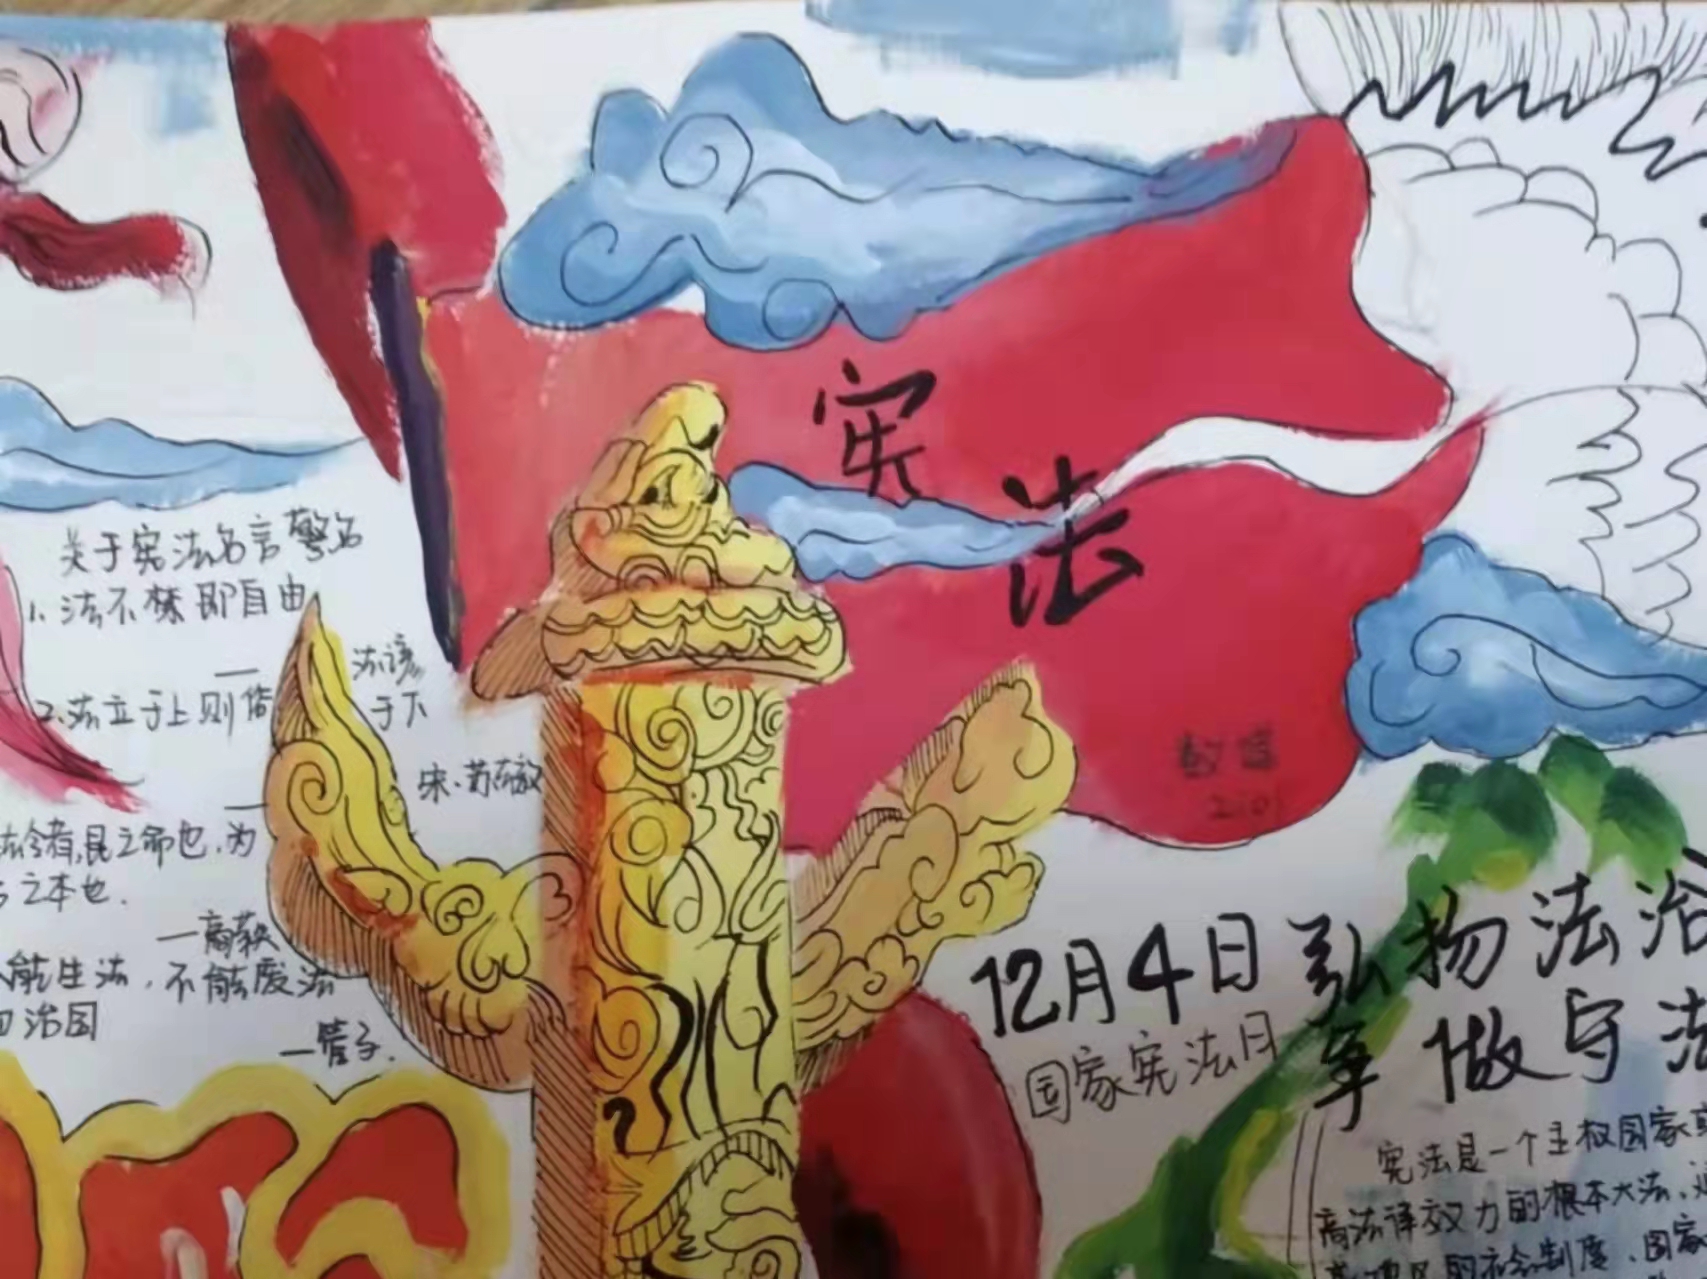 宪法
关于宪法名言警名
1. 法不禁即自由
— 法谚
2. 法立于上则俗
于下
— 宋·苏辙
法令者,民之命也,为
之本也.
—商鞅
能生法,不能废法
治国
—管子.
12月4日
国家宪法日
弘扬法治
做守法
宪法是一个主权国家
高法律效力的根本大法
的社会制度、国家